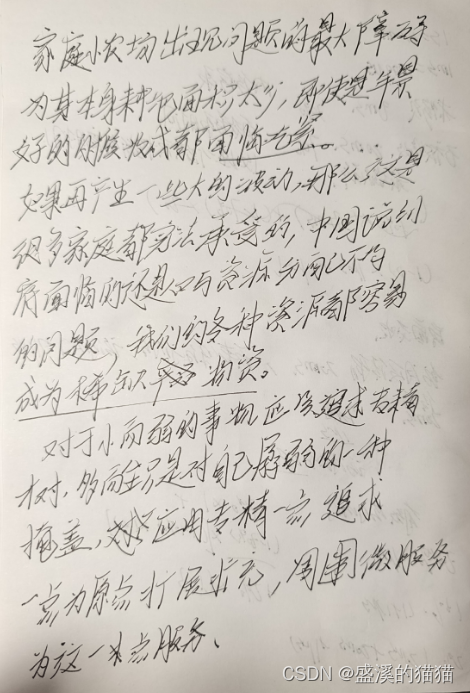 家庭小农场出现问题的最大障碍
为其本身耕地面积太少，即使是年景
好的时候收成都面临亏紧。
如果再产生一些大的波动，那么这是
很多家庭都无法承受的，中国说到
底面临的还是人与资源分配不均
的问题，我们的各种资源都容易
成为稀缺物资。
对于小而弱的事物应该追求专精
对，多而全只是对自己孱弱的一种
掩盖，应用专精一点追求
一点为原点扩展扩充，周围微服务
为这一点服务、
CSDN @盛溪的猫猫